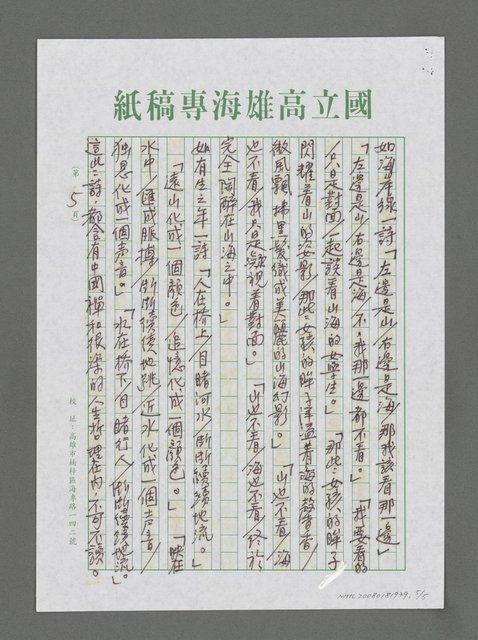 國立高雄海專稿紙
如海岸線「詩「左邊是山/右邊是海/那我該看那一邊」
「左邊是山/右邊是海/不,我那邊都不看。」「我要看的
/只是對面/一起談看山海的女孩。」「那些女孩的眸子
閃耀著山的姿影/那些女孩的眸子洋溢著海的馨香/
微風飄拂里髮織成美麗的山海幻影。」「山也不看/海
也不看/我只是凝視着對面。」「山也不看/海也不看/終於
完全陶醉在山海之中。」
如有生之年一詩「人在橋上/目睹河水/斷斷續續地流。」
「遠山化成一個顏色/追憶化成一個顏色。」「映在
水中/匯成脈搏/斷斷續續地跳/近水化成一個声音/
獨思化成一個声音。」「水在橋下/目睹行人/斷斷續續地流。」
這些詩,都含有中國禪和很深的人生哲理在內,不可不讀。
(第5頁)
校址:高雄市楠梓區海專路一四二號
NMTL20080181939, 5/5